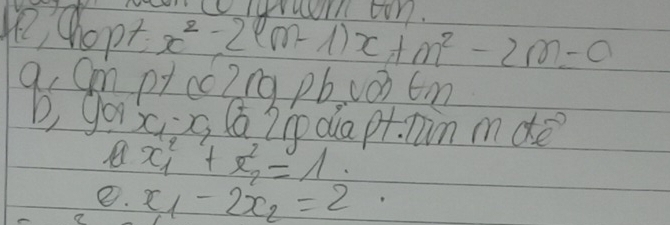 42, Cho pt: x² - 2(m-1)x + m² - 2m = 0
a, Cm pt có 2 ng pb với ∀m
b, gọi x₁, x₂ là 2 ng của pt. tìm m để
x₁² + x₂² = 1.
x₁ - 2x₂ = 2.